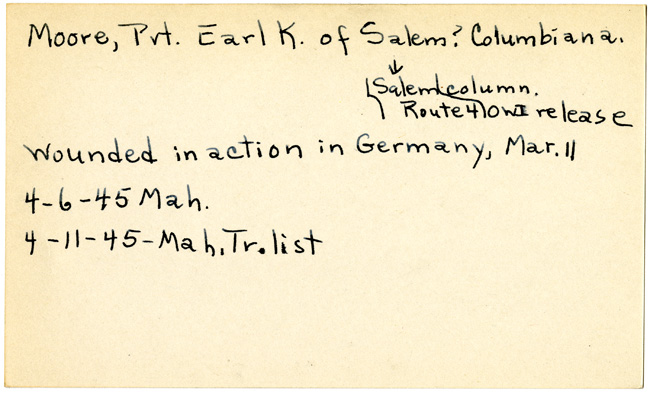 Moore, Pvt. Earl K. of Salem? Columbiana.
Salem column.
Route 4 OWI release
Wounded in action in Germany, Mar. 11
4-6-45 Mah.
4-11-45-Mah. Tr. list